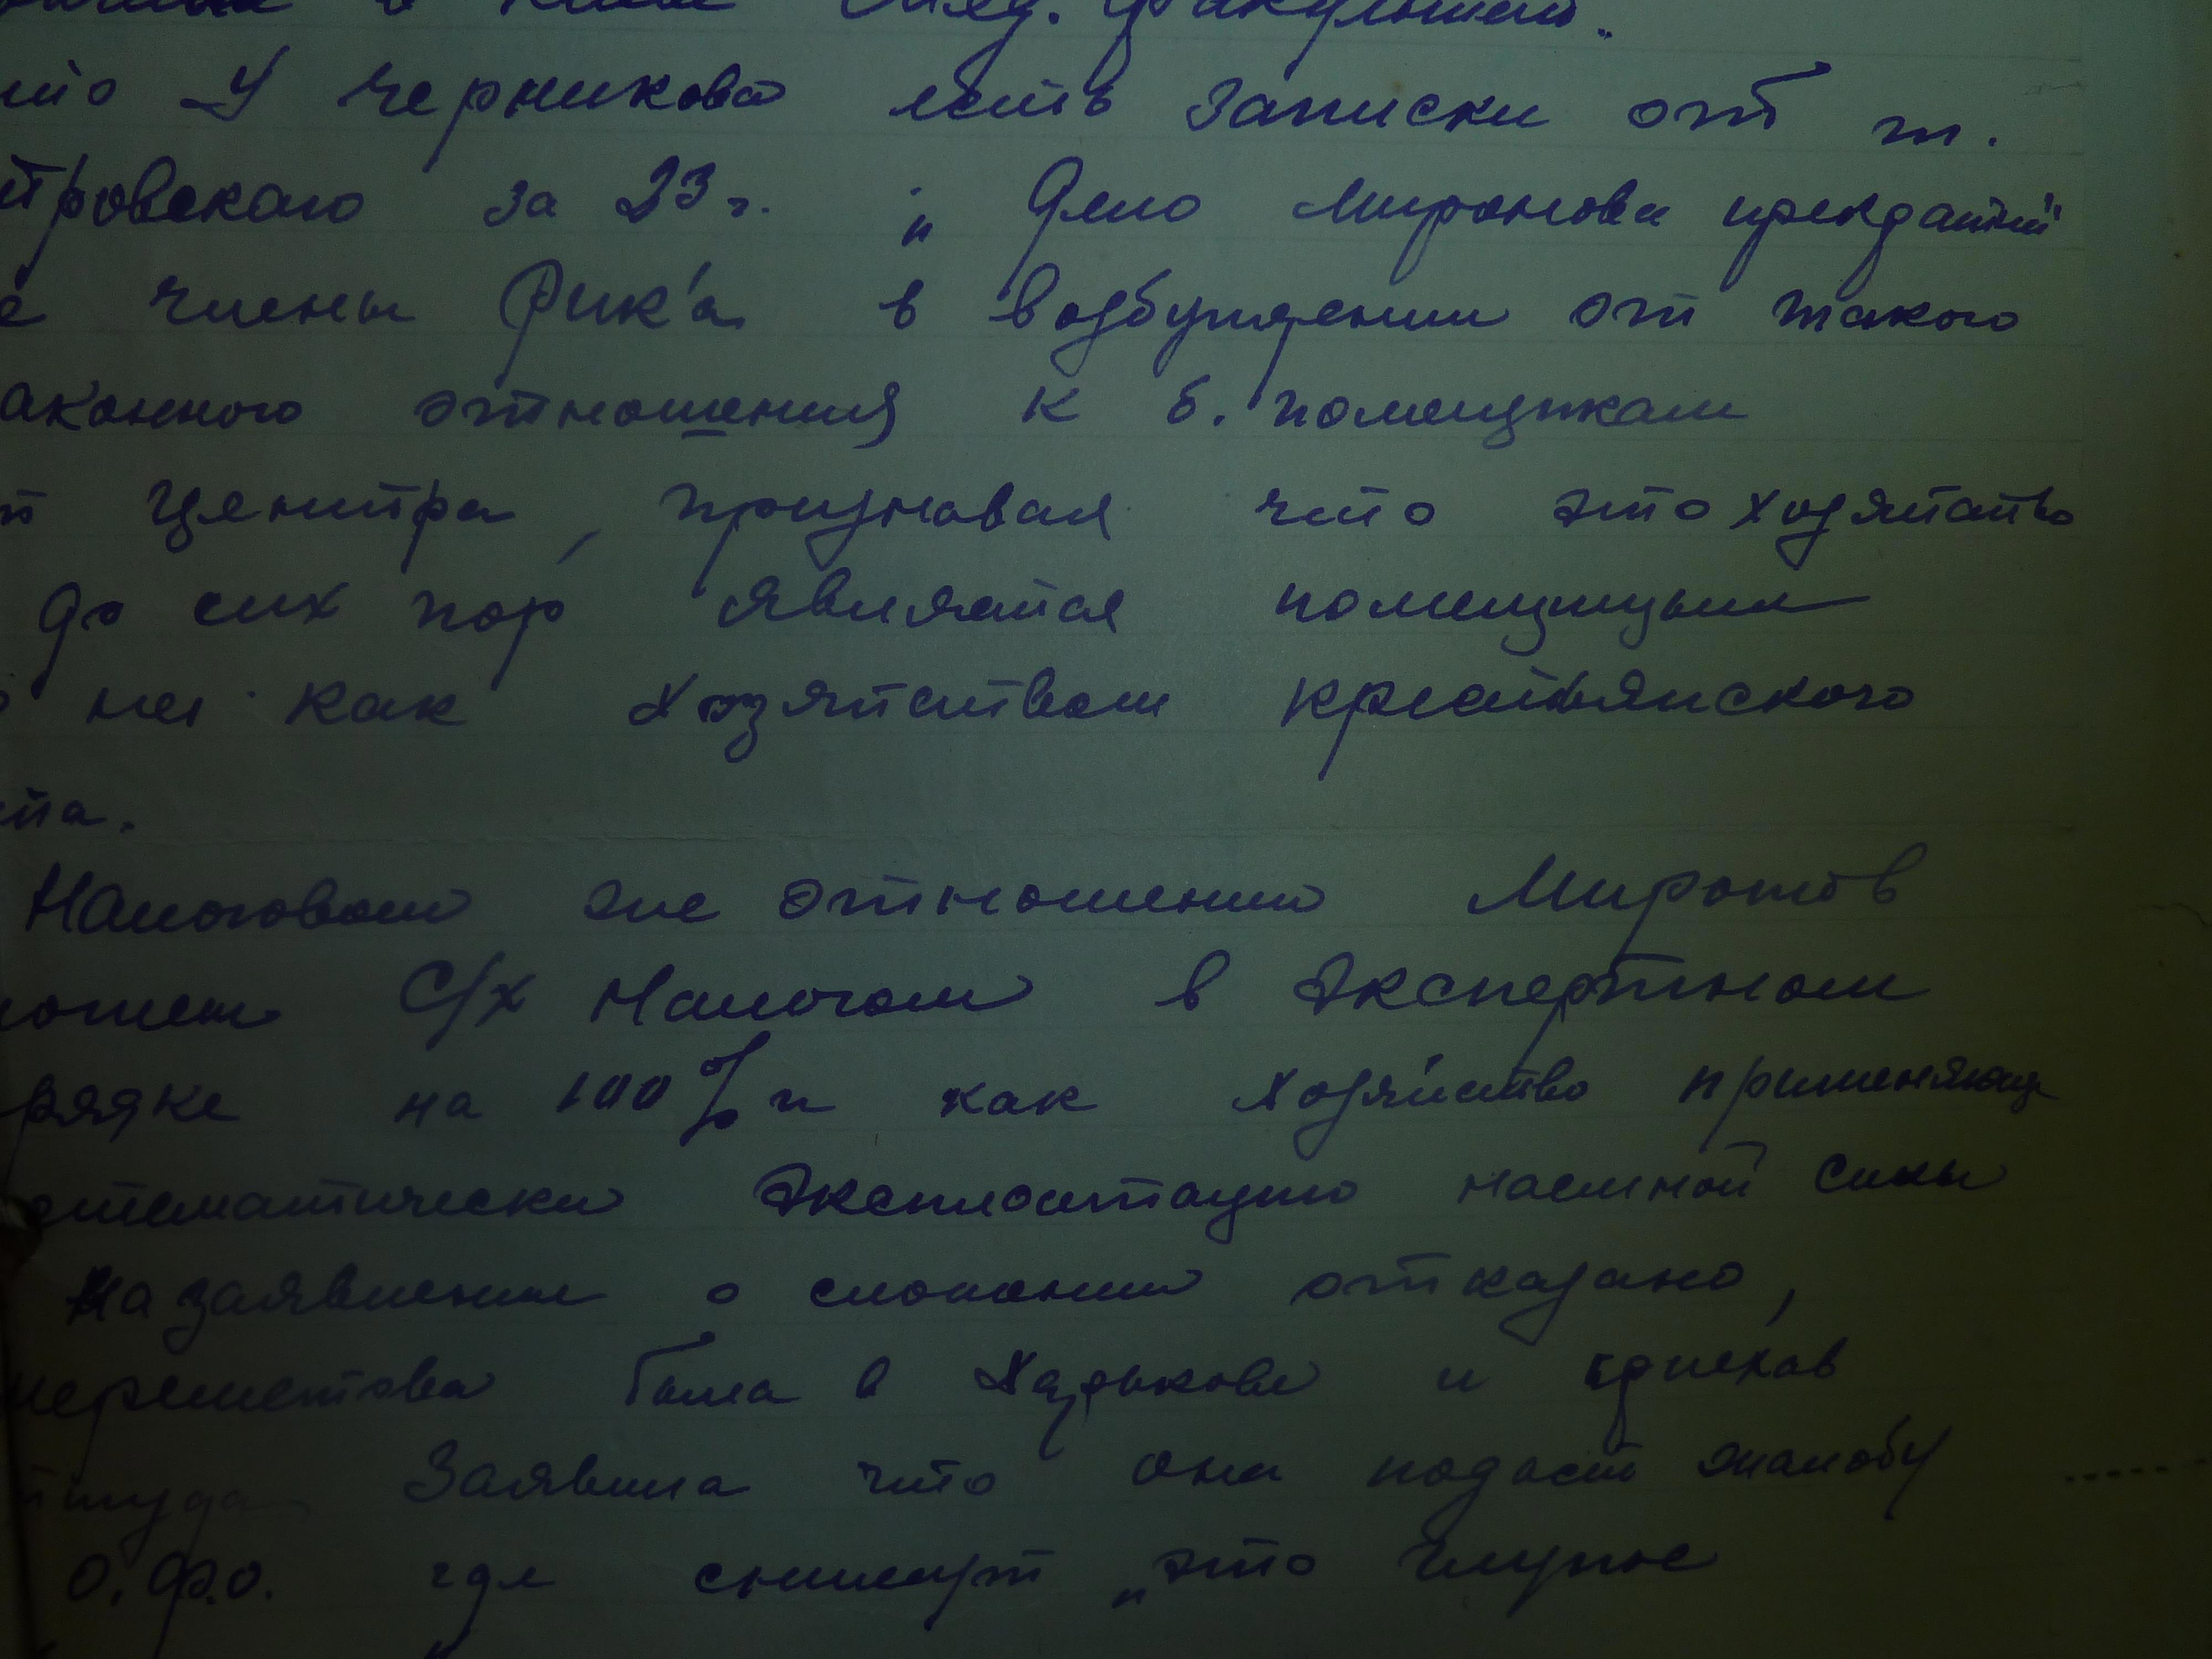 Мед. факультет.
что У Черникова есть записки от т.
тровского за 23 г. „Дело Миронова прекратить"
е члены Рик'а в возбуждении от такого
аконного отношения к б. помещикам
т центра, признавая что это хозяйство
до сих пор является помещицьим
не как хозяйством крестьянского
та.
Налоговом же отношении Миронов
ложен С/х Налогом в Экспертном
рядке на 100% и как хозяйство применяюще
стематически Эксплоатацию наемной силы
На заявлении о сложении отказано,
Шереметова была в Харькове и приехав
ттуда Заявила что она подаст жалобу
О.Ф.О. где снимут „это глупое